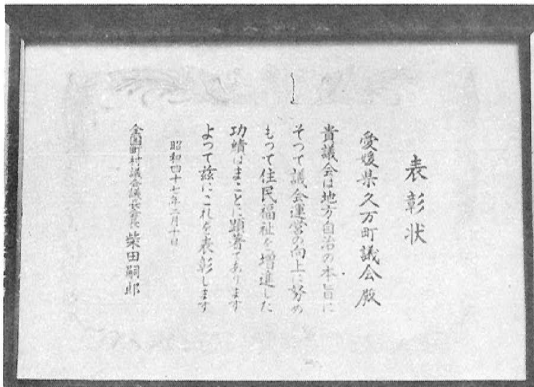 表彰状
愛媛県久万町議会殿
貴議会は地方自治の本旨に
そつて議会運営の向上に努め
もつて住民福祉を増進した
功績はまことに顕著であります
よつて茲にこれを表彰します
昭和四十七年二月十日
全国町村議会議長会長 柴田嗣郎